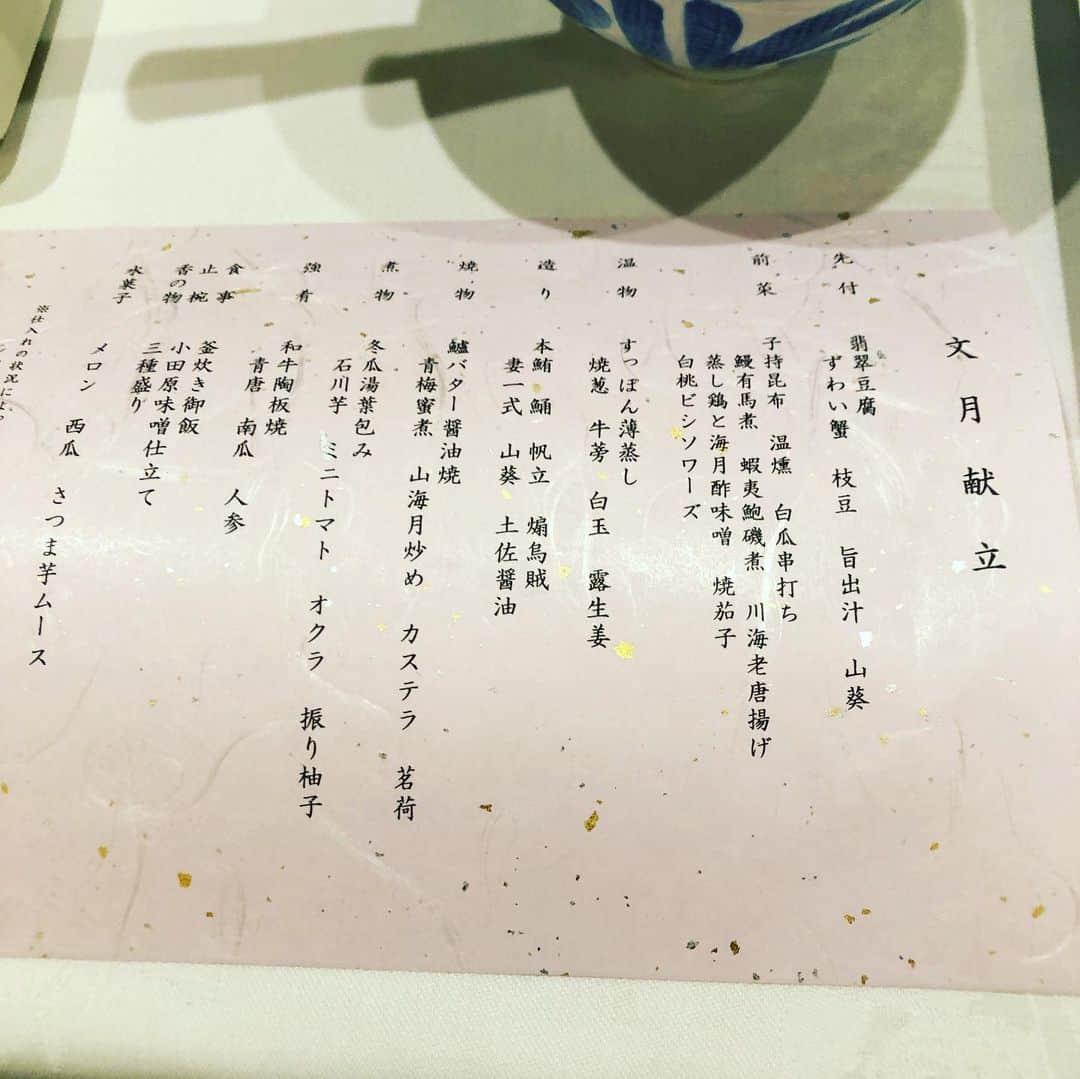 文月献立
先付
翡翠豆腐
ずわい蟹 枝豆 旨出汁 山葵
前菜
子持昆布 温燻 白瓜串打ち
鰻有馬煮 蝦夷鮑磯煮 川海老唐揚げ
蒸し鶏と海月酢味噌 焼茄子
白桃ビシソワーズ
温物
すっぽん薄蒸し
焼葱 牛蒡 白玉 露生姜
造り
本鮪 鯒 帆立 煽烏賊
妻一式 山葵 土佐醤油
焼物
鱸バター醤油焼
青梅蜜煮 山海月炒め カステラ 茗荷
煮物
冬瓜湯葉包み
石川芋 ミニトマト オクラ 振り柚子
強肴
和牛陶板焼
青唐 南瓜 人参
食事
釜炊き御飯
止椀
小田原味噌仕立て
香の物
三種盛り
水菓子
メロン 西瓜 さつま芋ムース
※仕入れの状況によ